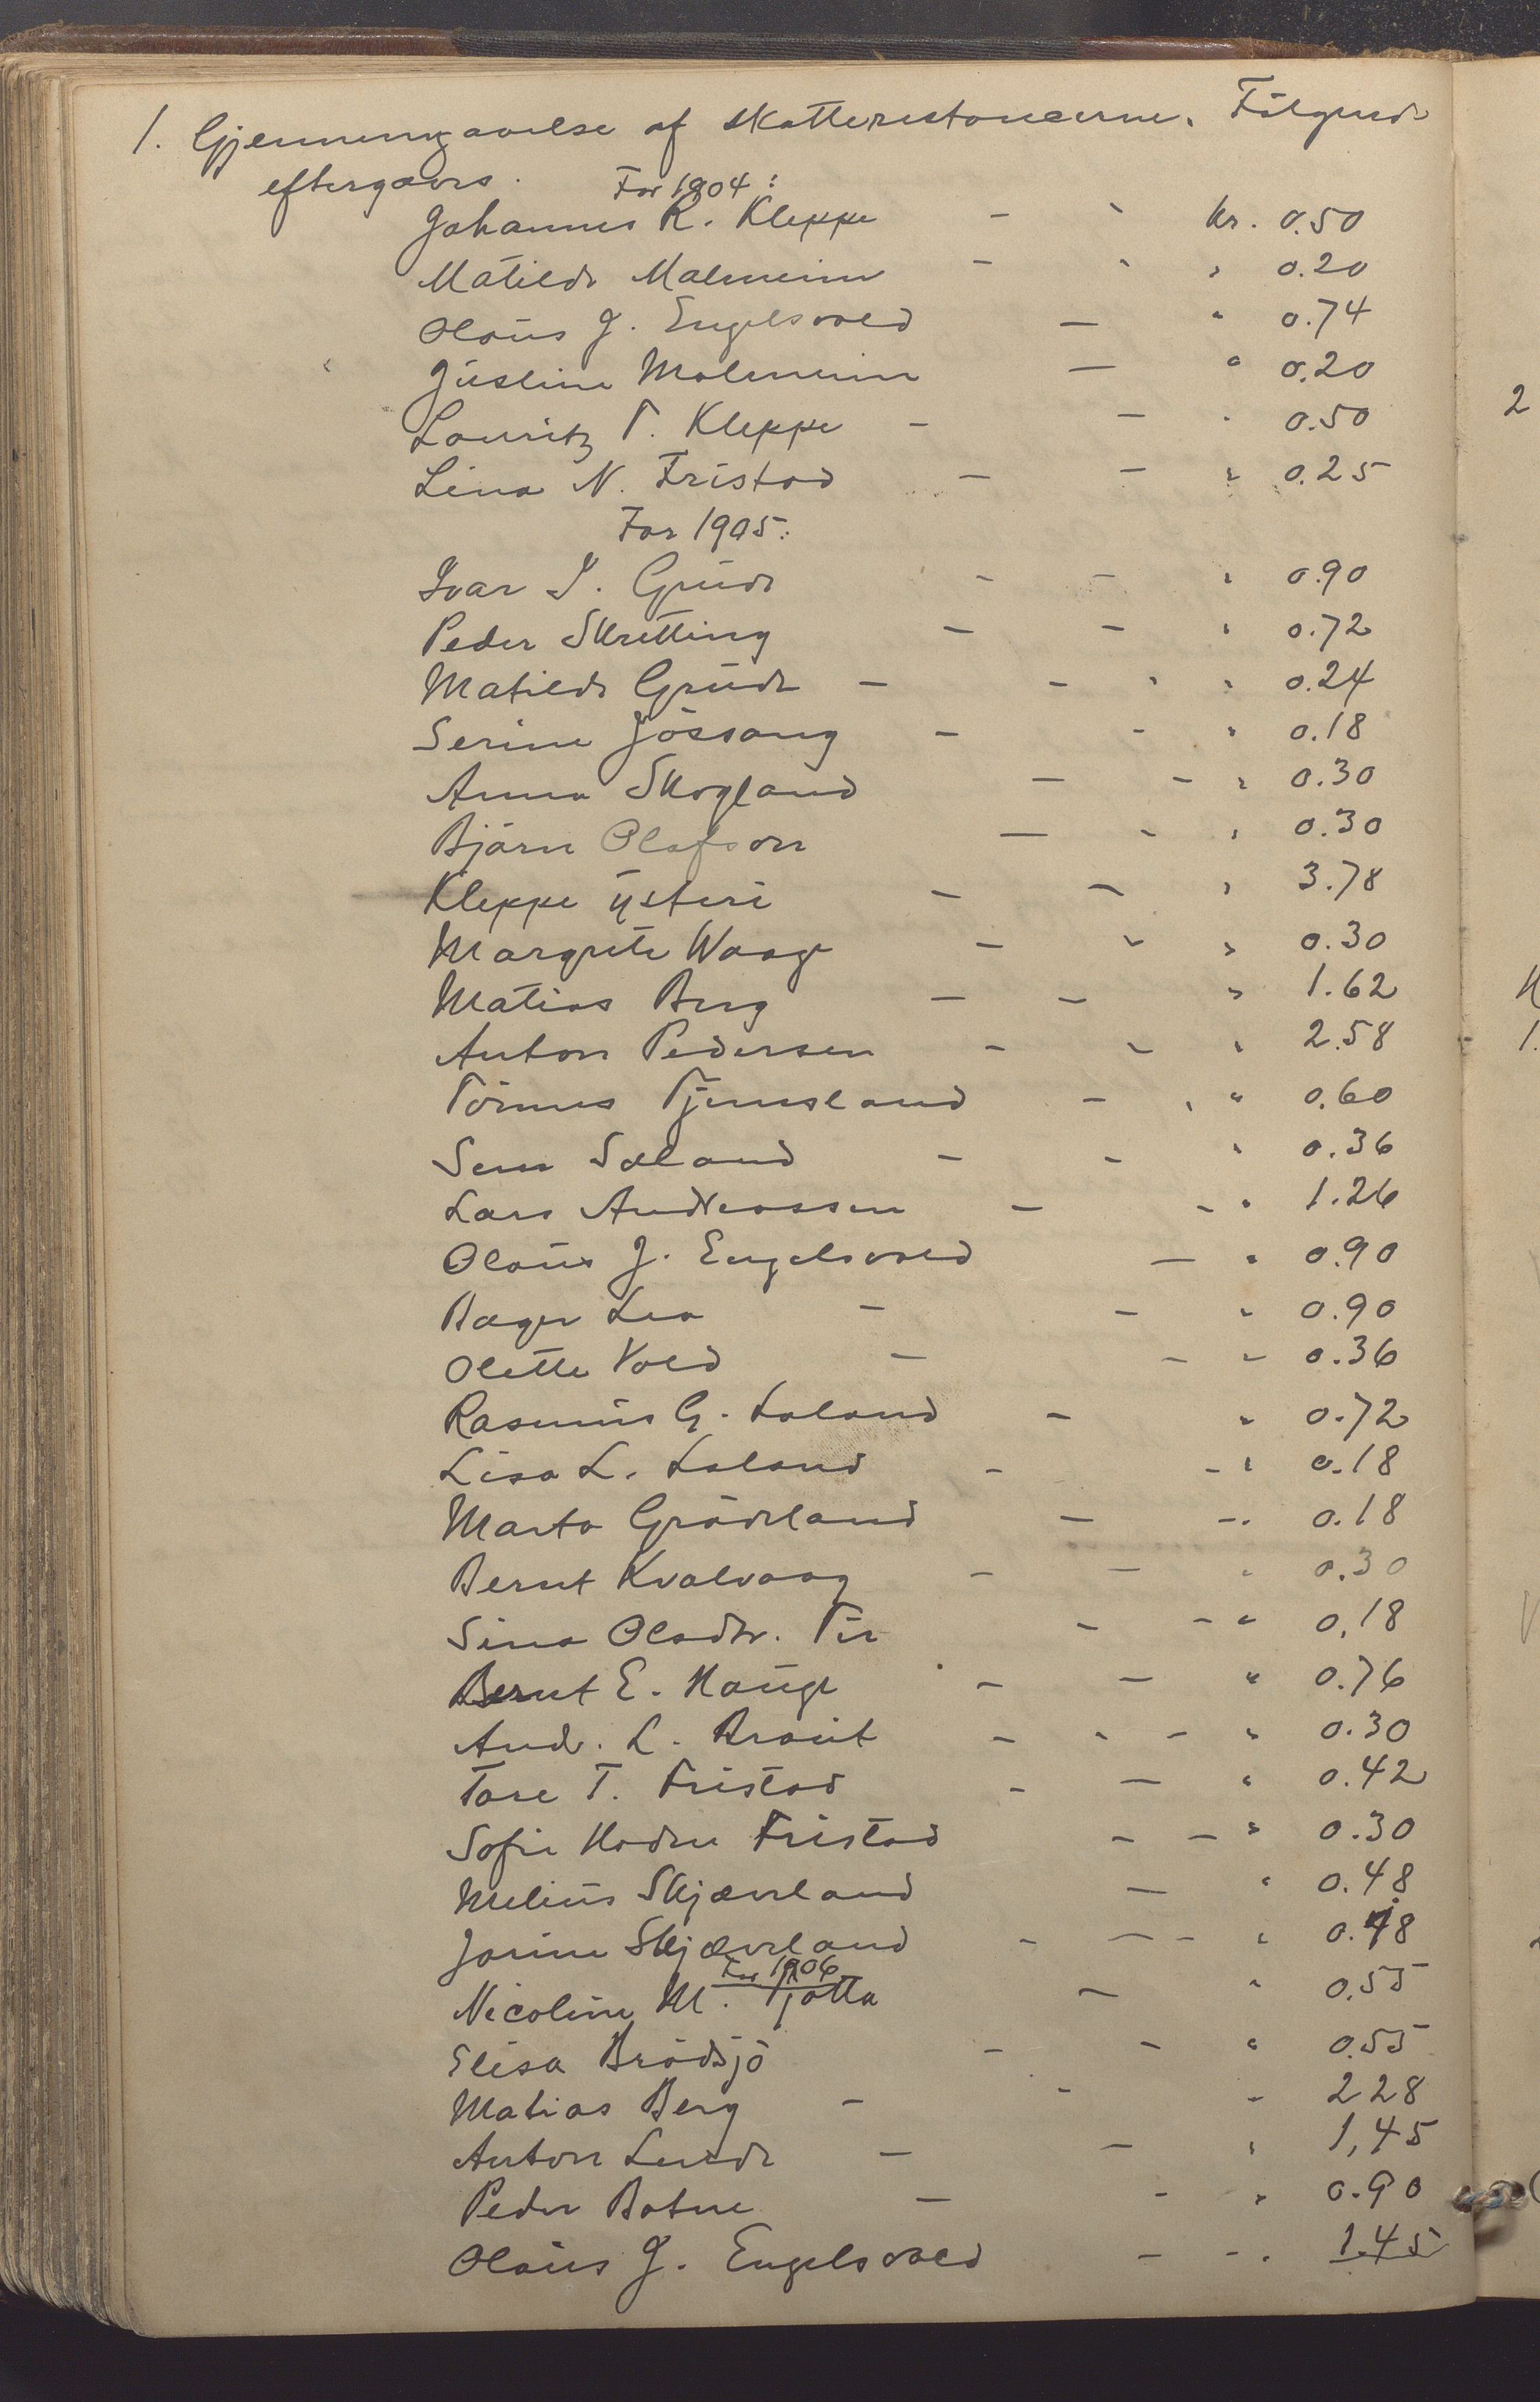 1. Gjennemgaaelse af skatterestancerne. Fölgende
eftergaves.
For 1904:
Johannes R. Kleppe - - kr. 0.50
Matilde Malmeim - - " 0.20
Olaus J. Engelsvold - " 0.74
Justine Malmeim - " 0.20
Lauritz T. Kleppe - - " 0.50
Lina N. Fristad - - " 0.25
For 1905:
Ivar I. Grude - - " 0.90
Peder Skretting - - " 0.72
Matilde Grude - - - " 0.24
Serine Jössang - - " 0.18
Anna Skogland - - " 0.30
Björn Olafson - - " 0.30
Kleppe ysteri - - " 3.78
Margrete Waage - - " 0.30
Matias Berg - - " 1.62
Anton Pedersen - - " 2.58
Törnes Tjemsland - - " 0.60
Sem Sæland - - " 0.36
Lars Andreassen - - " 1.26
Olaus J. Engelsvold - " 0.90
Bæger Lea - - " 0.90
Olette Vold - - " 0.36
Rasmus G. Laland - " 0.72
Lisa L. Laland - - " 0.18
Marta Grödeland - - " 0.18
Bernt Kvalvaag - - " 0.30
Sina Olsdtr. Tu - - " 0,18
Bernt E. Hauge - - " 0.76
Andr. L. Braut - - - " 0.30
Tore T. Fristad - - " 0.42
Sofie Hodne Fristad - - " 0.30
Melius Skjæveland - " 0.48
Jorine Skjæveland - - - " 0.48
For 1906
Nicoline M. Tjøtta - " 0.55
Elisa Brödsjö - - " 0.55
Matias Berg - - " 2 28
Anton Lende - - " 1,45
Peder Botne - - " 0.90
Olaus J. Engelsvold - - " 1.45